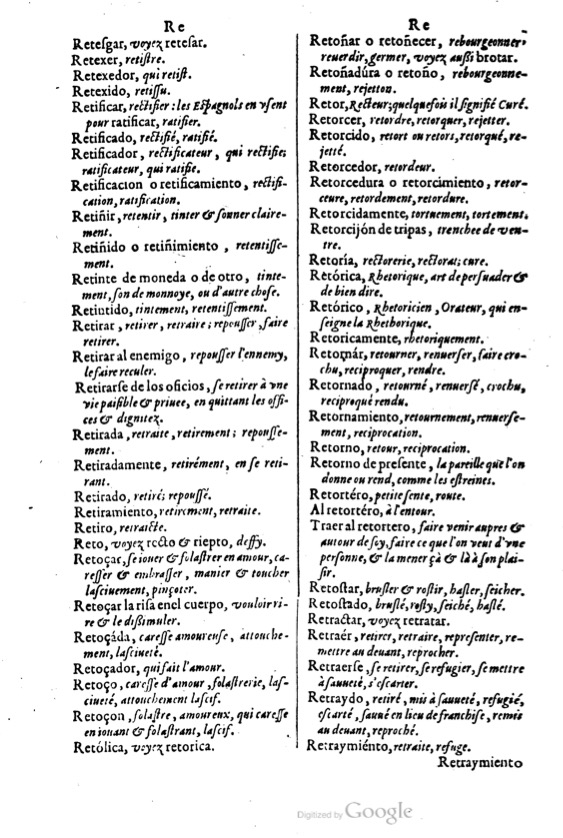 Re
Retesgar, voyez retesar.
Retexer, retistre.
Retexedor, qui retist.
Retexido, retissu.
Retificar, rectifier : les Espagnols en vsent
pour ratificar, ratifier.
Retificado, rectifié, ratifié.
Retificador, rectificateur, qui rectifie;
ratificateur, qui ratifie.
Retificacion o retificamiento, rectifi-
cation, ratification.
Retiñir, retentir, tinter & sonner claire-
ment.
Retiñido o retiñimiento, retentisse-
ment.
Retinte de moneda o de otro, tinte-
ment, son de monnoye, ou d'autre chose.
Retintido, tintement, retentissement.
Retirar, retirer, retraire; repousser, faire
retirer.
Retirar al enemigo, repousser l'ennemy,
le faire reculer.
Retirarse de los oficios, se retirer à vne
vie paisible & priuee, en quittant les offi-
ces & dignitez.
Retirada, retraite, retirement; repousse-
ment.
Retiradamente, retirément, en se reti-
rant.
Retirado, retiré; repoussé.
Retiramiento, retirement, retraite.
Retiro, retraicte.
Reto, voyez recto & riepto, deffy.
Retoçar, se iouer & folastrer en amour, ca-
resser & embrasser, manier & toucher
lasciuement, pinçoter.
Retoçar la risa enel cuerpo, vouloir ri-
re & le dissimuler.
Retoçáda, caresse amoureuse, attouche-
ment, lasciueté.
Retoçador, qui fait l'amour.
Retoço, caresse d'amour, folastrerie, las-
ciueté, attouchement lascif.
Retoçon, folastre, amoureux, qui caresse
en iouant & folastrant, lascif.
Retólica, voyez retorica.
Re
Retoñar o retoñecer, rebourgeonner,
reuerdir, germer, voyez aussi brotar.
Retoñadúra o retoño, rebourgeonne-
ment, rejetton.
Retor, Recteur; quelquefois il signifié Curé.
Retorcer, retordre, retorquer, rejetter.
Retorcido, retort ou retors, retorqué, re-
jetté.
Retorcedor, retordeur.
Retorcedura o retorcimiento, retor-
ceure, retordement, retordure.
Retorcidamente, tortuement, tortement.
Retorcijón de tripas, trenchee de ven-
tre.
Retoría, rectorerie, rectorat; cure.
Retórica, Rhetorique, art de persuader &
de bien dire.
Retórico, Rhetoricien, Orateur, qui en-
seigne la Rhethorique.
Retoricamente, rhetoriquement.
Retornár, retourner, renuerser, faire cro-
chu, reciproquer, rendre.
Retornado, retourné, renuersé, crochu,
reciproqué rendu.
Retornamiento, retournement, renuerse-
ment, reciprocation.
Retorno, retour, reciprocation.
Retorno de presente, la pareille que l'on
donne ou rend, comme les estreines.
Retortéro, petite sente, route.
Al retortéro, à l'entour.
Traer al retortero, faire venir aupres &
autour de soy, faire ce que l'on veut d'vne
personne, & la mener çà & là à son plai-
sir.
Retostar, brusler & rostir, hasler, seicher.
Retostado, bruslé, rosty, seiché, haslé.
Retractar, voyez retratar.
Retraér, retirer, retraire, representer, re-
mettre au deuant, reprocher.
Retraerse, se retirer, se refugier, se mettre
à sauueté, s'escarter.
Retraydo, retiré, mis à sauueté, refugié,
escarté, sauué en lieu de franchise, remis
au deuant, reproché.
Retraymiénto, retraite, refuge.
Retraymiento
Digitized by Google